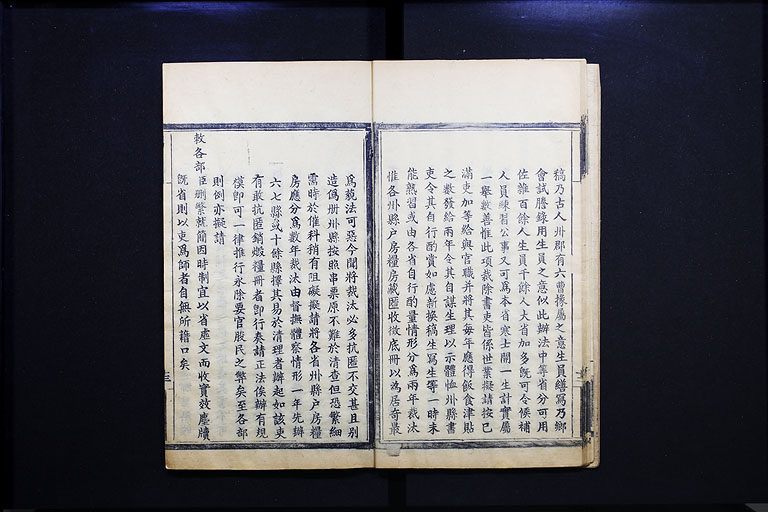 稿乃古人州郡有六曹掾屬之意生員繕寫乃鄉
會試謄錄用生員之意似此辦法中等省分可用
佐雜百餘人生員千餘人大省加多既可令候補
人員練習公事又可為本省寒士開一生計實屬
一舉數善惟此項裁除書吏皆係世業擬請按已
滿吏加等給與官職并將其每年應得飯食津貼
之數發給兩年令其自謀生理以示體恤州縣書
吏令其自行酌賞如慮新換稿生寫生等一時未
能熟習或由各省自行酌量情形分為兩年裁汰
惟各州縣戶房糧房藏匿收徵底冊以為居奇最
為藐法可惡今聞將裁汰必多抗匿不交甚且別
造偽册州縣按照串票原不難於清查但恐繁細
需時於催科稍有阻礙擬請將各省州縣戶房糧
房應分為數年裁汰由督撫體察情形一年先辦
六七縣或十餘縣擇其易於清理者辦起如該吏
有敢抗匿銷燬糧冊者即行奏請正法俟辦有規
模即可一律推行永除要官殷民之弊矣至各部
則例亦擬請
敕各部臣刪繁就簡因時制宜以省虛文而收實效塵牘
既省則以吏為師者自無所藉口矣